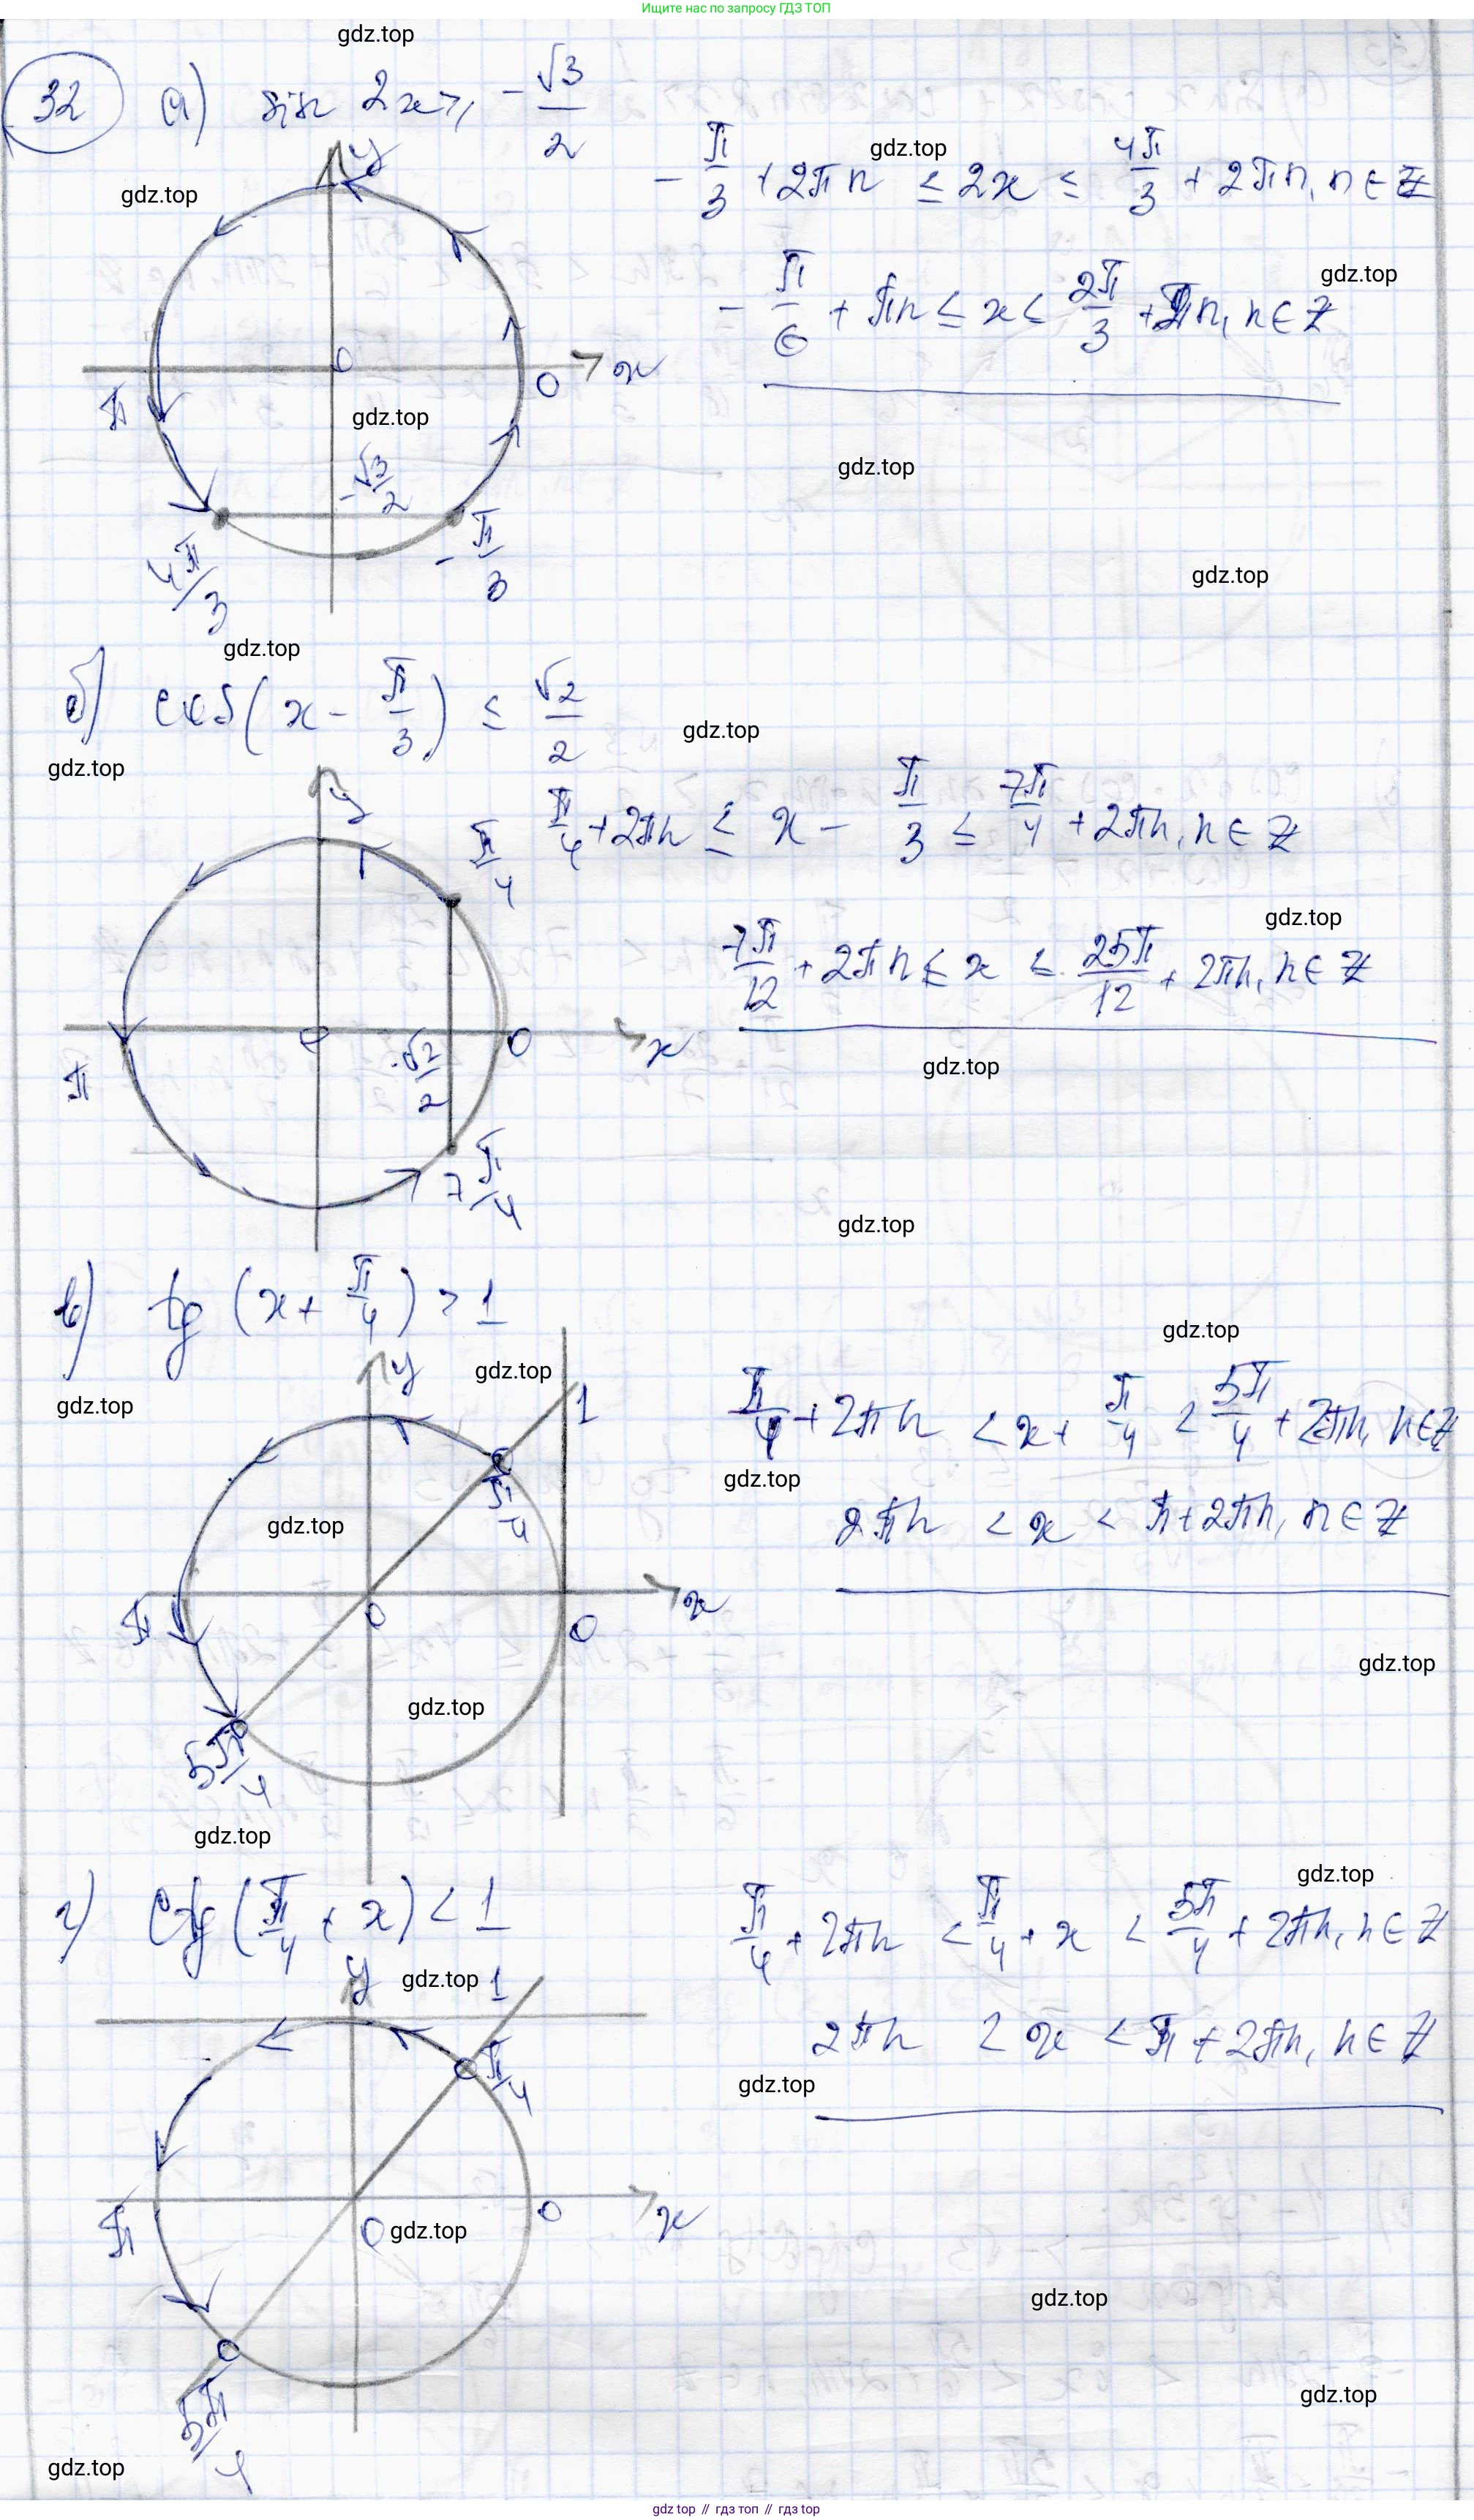 Ищите нас по запросу ГДЗ ТОП
gdz.top
32 а) sin 2x ≥ -√3/2
gdz.top
gdz.top
y
-π/3 + 2πn ≤ 2x ≤ 4π/3 + 2πn, n ∈ Z
gdz.top
-π/6 + πn ≤ x ≤ 2π/3 + πn, n ∈ Z
0
0
x
π
gdz.top
gdz.top
-√3/2
4π/3
-π/3
gdz.top
gdz.top
б) cos(x - π/3) ≤ √2/2
gdz.top
gdz.top
y
π/4
π/4 + 2πn ≤ x - π/3 ≤ 7π/4 + 2πn, n ∈ Z
gdz.top
7π/12 + 2πn ≤ x ≤ 25π/12 + 2πn, n ∈ Z
0
0
x
π
√2/2
gdz.top
7π/4
gdz.top
в) tg (x + π/4) > 1
gdz.top
gdz.top
gdz.top
y
1
π/4 + 2πn < x + π/4 < 5π/4 + 2πn, n ∈ Z
gdz.top
π/4
gdz.top
2πn < x < π + 2πn, n ∈ Z
π
0
0
x
gdz.top
gdz.top
5π/4
gdz.top
г) ctg (π/4 + x) < 1
gdz.top
π/4 + 2πn < π/4 + x < 5π/4 + 2πn, n ∈ Z
y
gdz.top
1
π/4
2πn < x < π + 2πn, n ∈ Z
gdz.top
π
0
gdz.top
0
x
gdz.top
5π/4
gdz.top
gdz.top
gdz top // гдз топ // гдз top